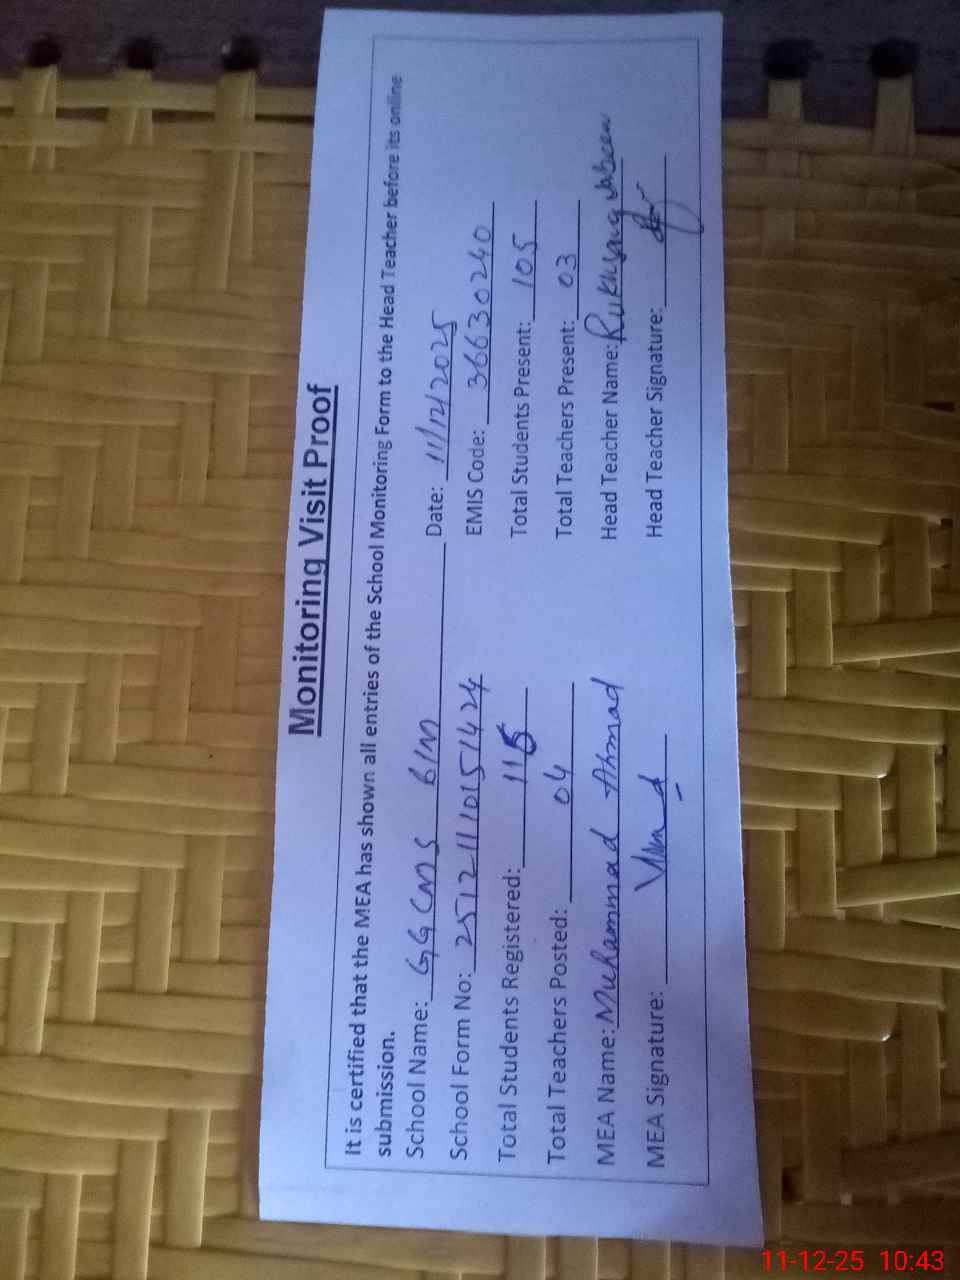 Monitoring Visit Proof
It is certified that the MEA has shown all entries of the School Monitoring Form to the Head Teacher before its online
submission.
School Name: GGCMS BIM Date: 11/12/2025
School Form No: 25121110151424 EMIS Code: 36630240
Total Students Registered: 115 Total Students Present: 105
Total Teachers Posted: 04 Total Teachers Present: 03
MEA Name: Muhammad Ahmad Head Teacher Name: Rukhsana Jabeen
MEA Signature: Head Teacher Signature:
11-12-25 10:43